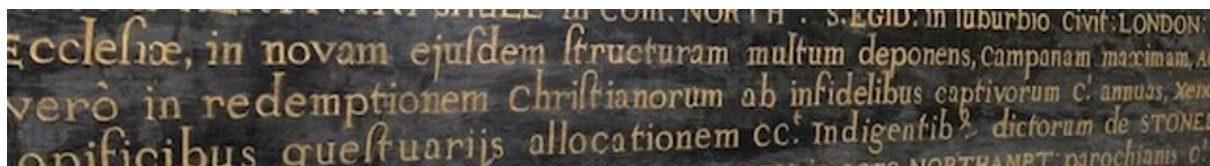 in COM: NORTH . S.EGID: in suburbio Civit: LONDON:
Eccleſiæ, in novam ejuſdem ſtructuram multum deponens, Campanam maximam,
verò in redemptionem Chriſtianorum ab infidelibus captivorum C: annuas,
opificibus queſtuarijs allocationem CC: Indigentib dictorum de STONE
NORTHAMPT: parochianis